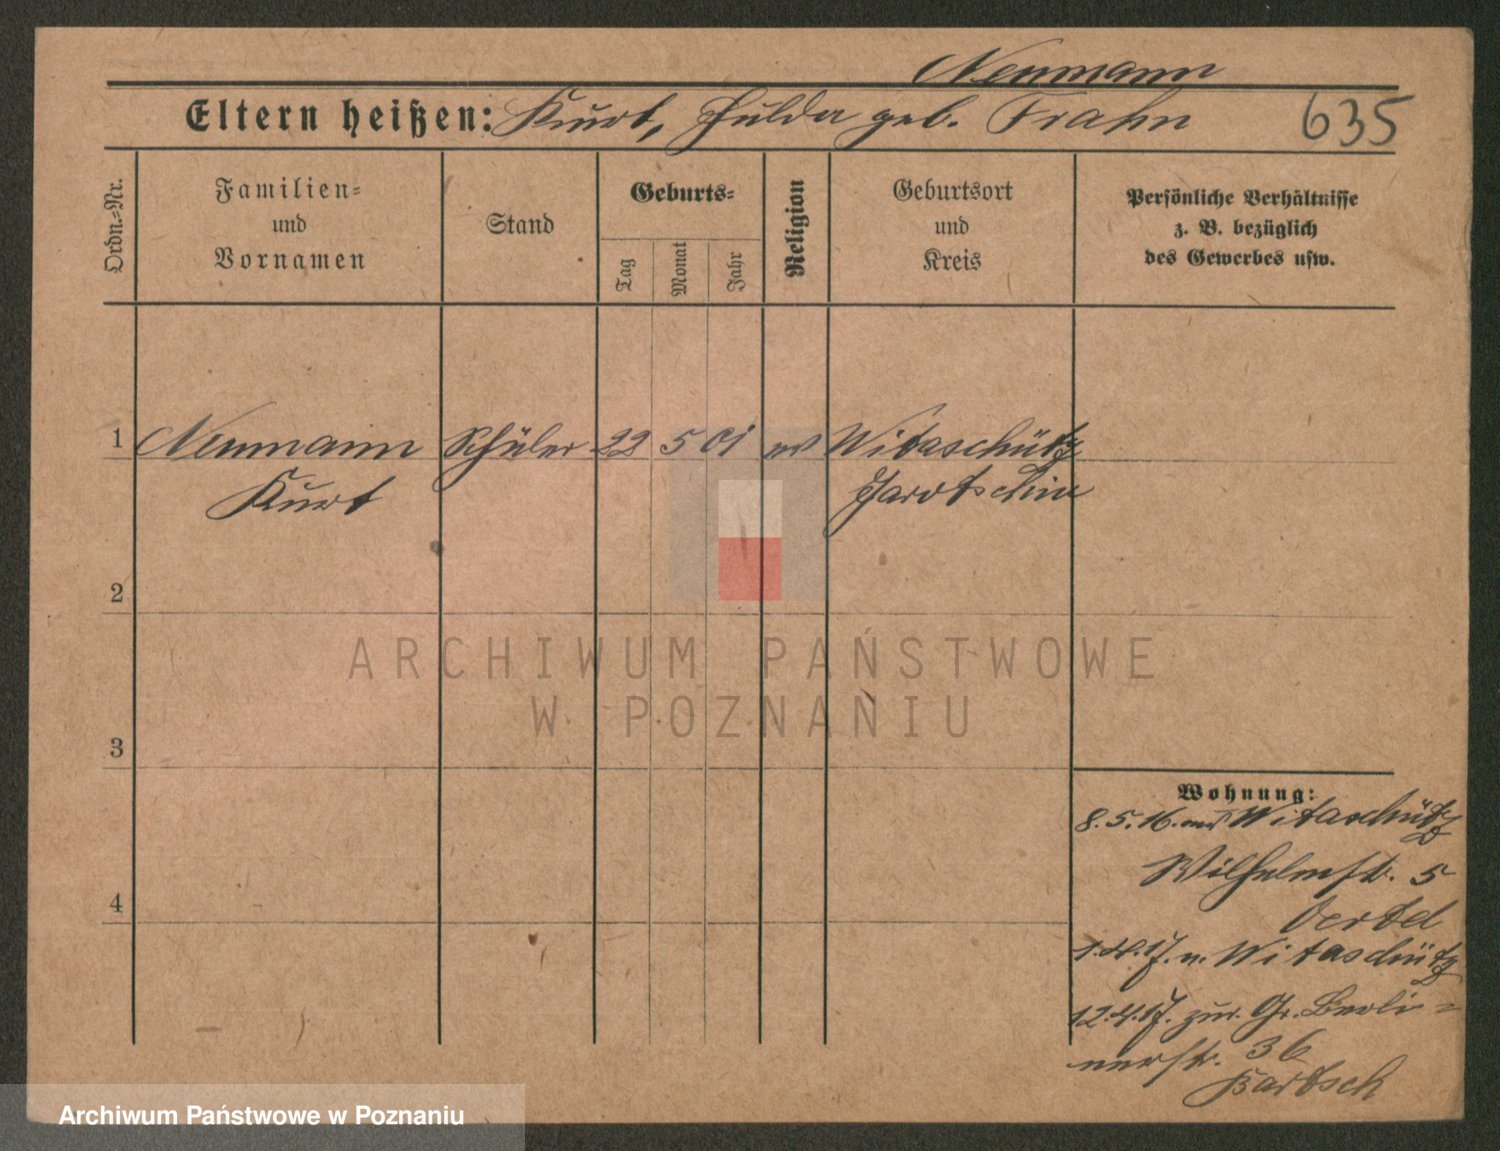 Neumann
Eltern heißen: Kurt, Hulda geb. Frahn
635
Ordn.-Nr.
Familien-
und
Vornamen
Stand
Geburts-
Tag
Monat
Jahr
Religion
Geburtsort
und
Kreis
Persönliche Verhältnisse
z. B. bezüglich
des Gewerbes usw.
1 Neumann Schüler 22 5 01 ev Witaschütz
Kurt Jarotschin
2
3
4
Wohnung:
8.5.16. aus Witaschütz
Wilhelmstr. 5
Oertel
1.4.17. n. Witaschütz
12.4.17. zur. Gr. Berli-
nerstr. 36
Bartsch
ARCHIWUM PAŃSTWOWE
W POZNANIU
Archiwum Państwowe w Poznaniu